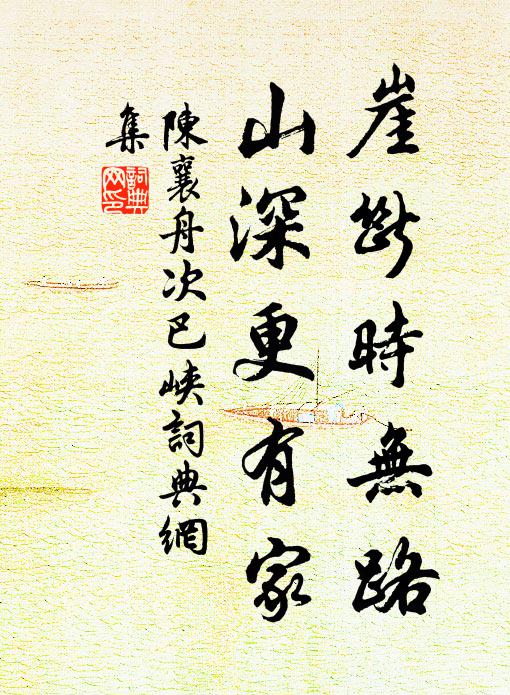 崖斷時無路
山深更有家
陳襄舟次巴峽詞典網
集
詞典网印